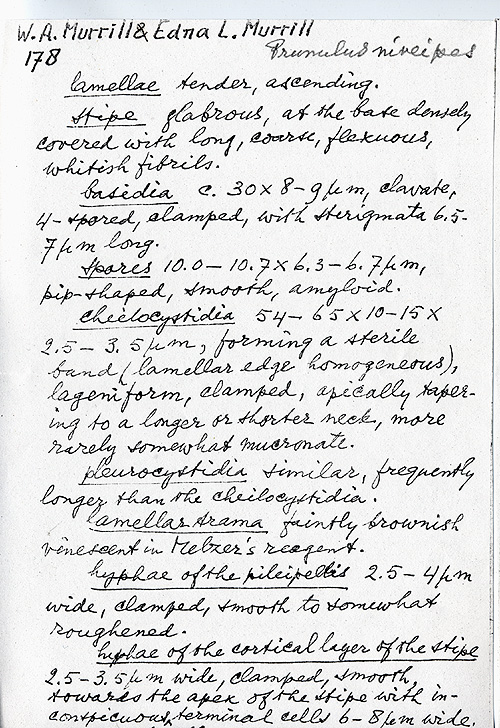 W.A. Murrill & Edna L. Murrill
Prunulus niveipes
178
lamellae tender, ascending.
stipe glabrous, at the base densely
covered with long, coarse, flexuous,
whitish fibrils.
basidia c. 30 x 8-9 µm, clavate,
4-spored, clamped, with sterigmata 6.5-
7 µm long.
spores 10.0-10.7 x 6.3-6.7 µm,
pip-shaped, smooth, amyloid.
cheilocystidia 54-65 x 10-15 x
2.5-3.5 µm, forming a sterile
band (lamellar edge homogeneous),
lageniform, clamped, apically taper-
ing to a longer or shorter neck, more
rarely somewhat mucronate.
pleurocystidia similar, frequently
longer than the cheilocystidia.
lamellar trama faintly brownish
vinescent in Melzer's reagent.
hyphae of the pileipellis 2.5-4 µm
wide, clamped, smooth to somewhat
roughened.
hyphae of the cortical layer of the stipe
2.5-3.5 µm wide, clamped, smooth,
towards the apex of the stipe with in-
conspicuous, terminal cells 6-8 µm wide.